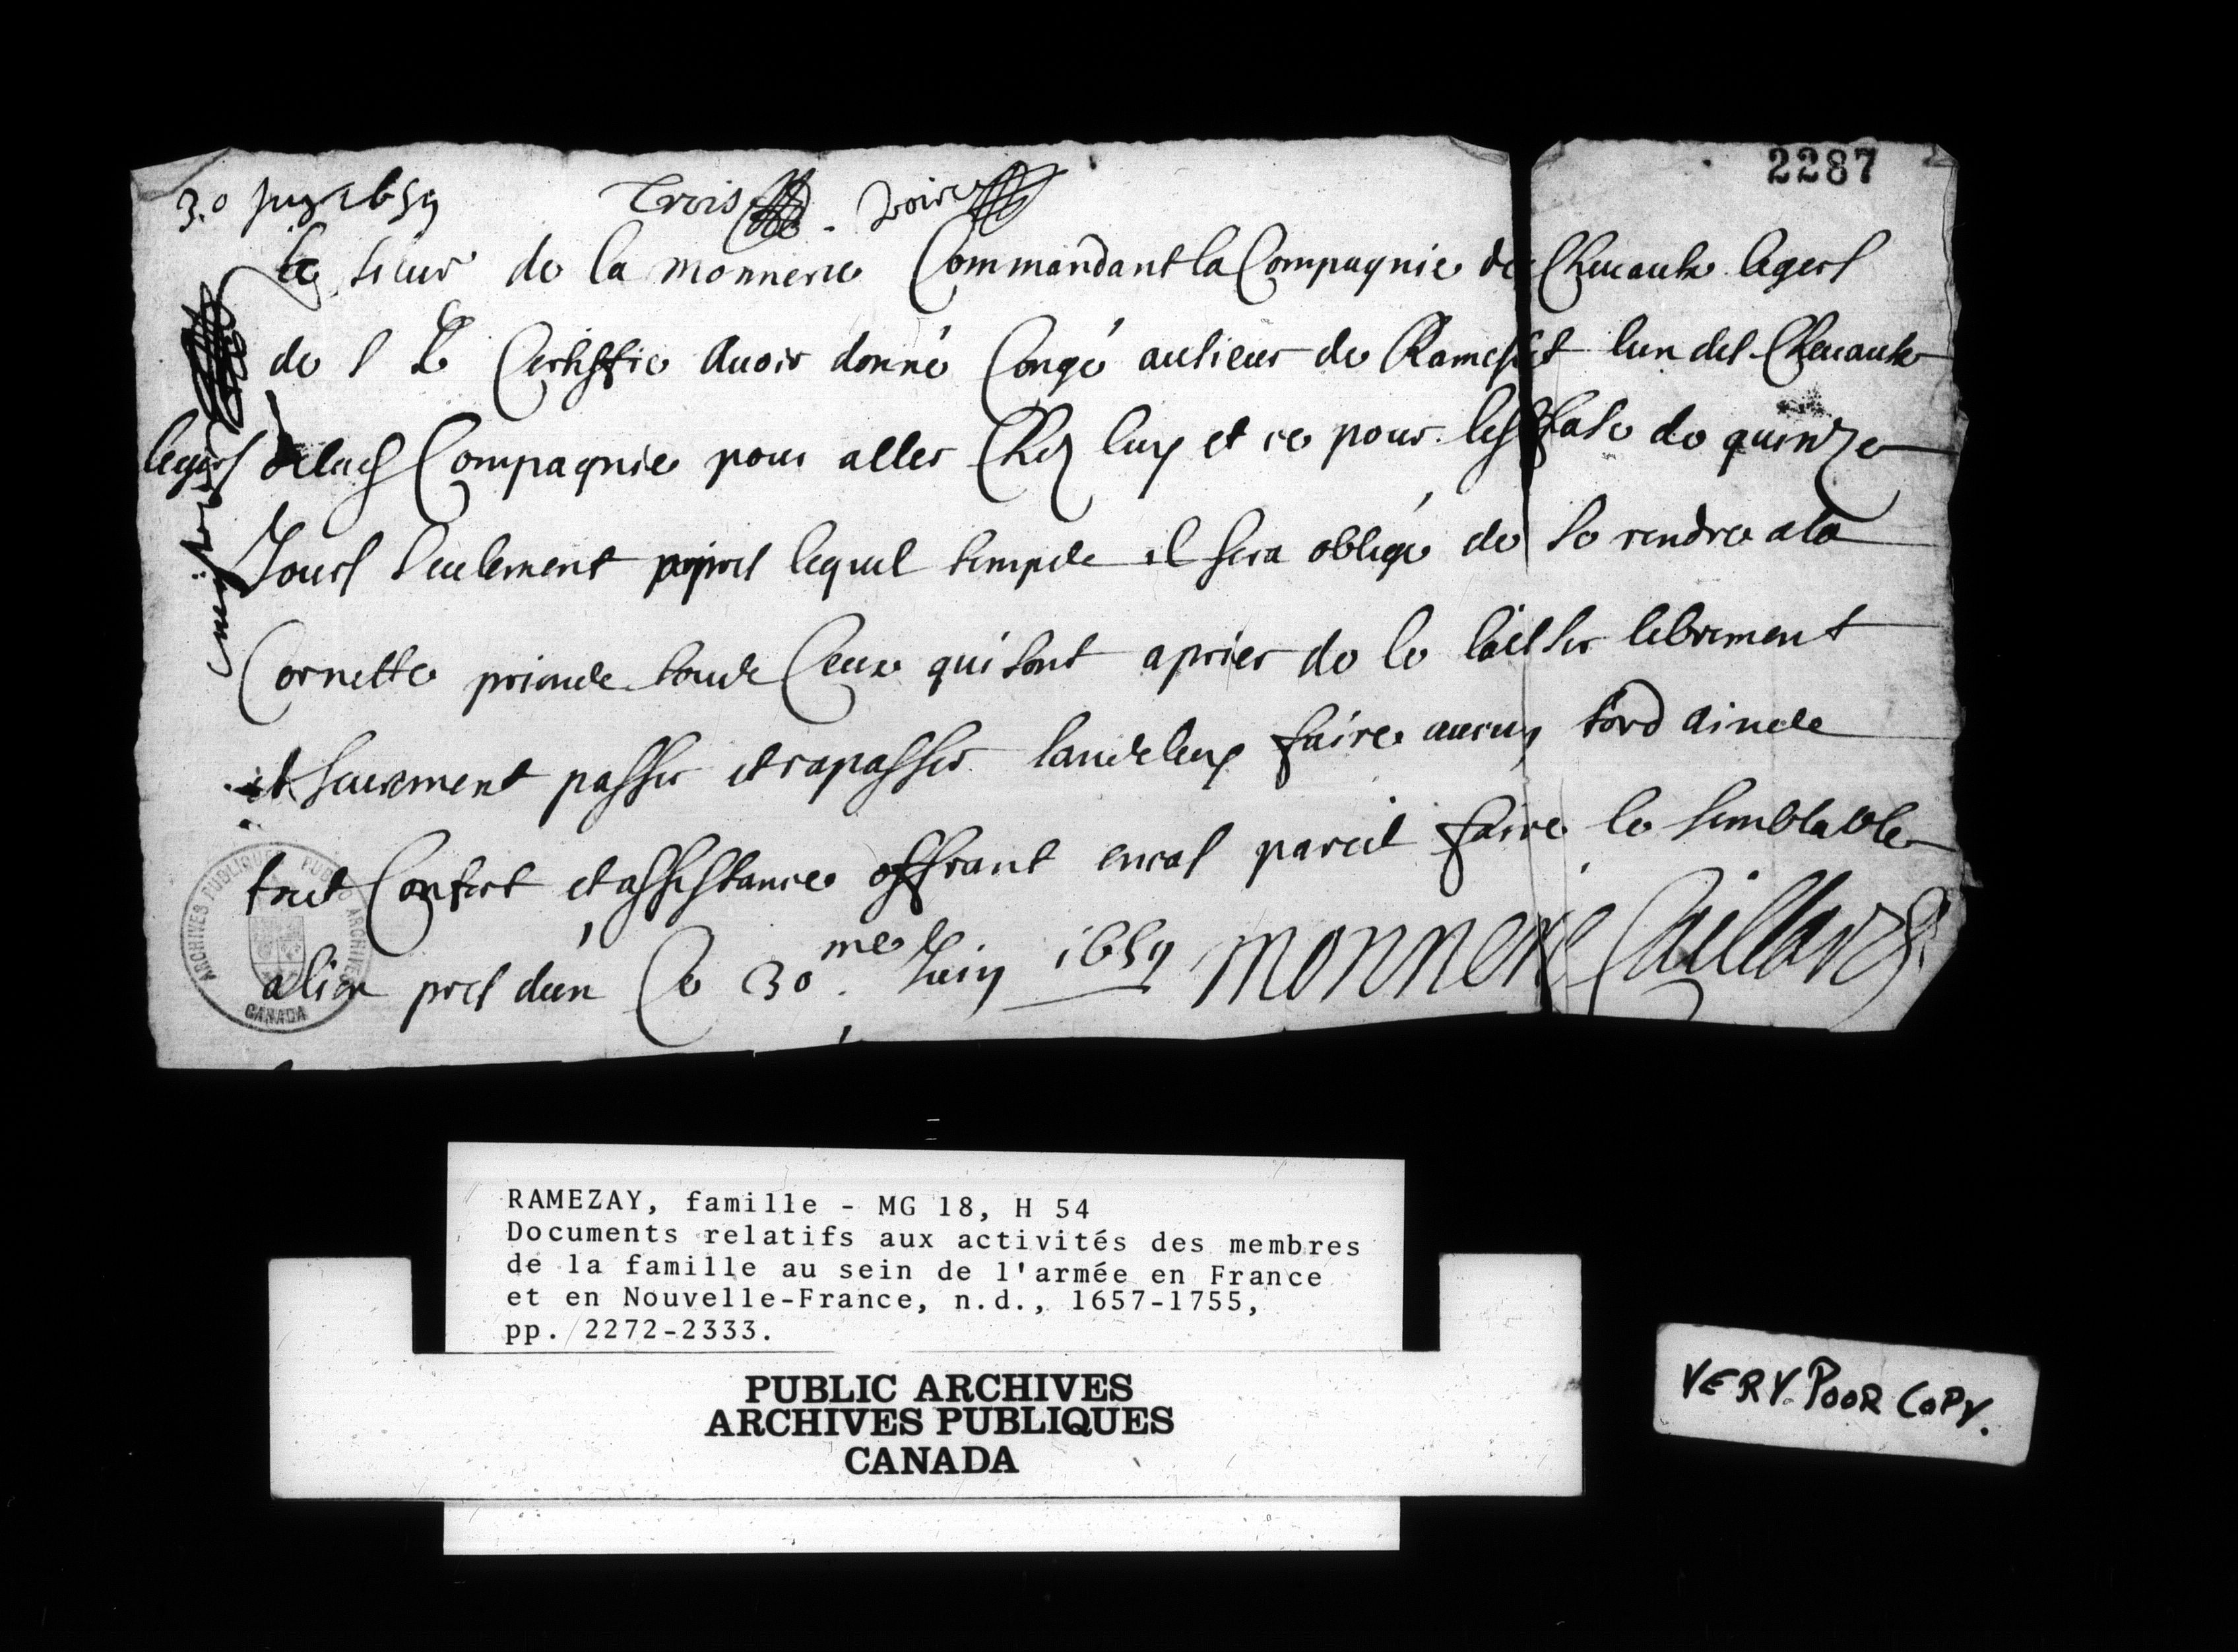 2287
30 juin 1659 Trois
Le sieur de la monnerie Commandant la Compagnie de Cheuaux legers
de S E Certiffie Auoir donné Congé au sieur de Ramesset lun des Cheuaux
legers de lad Compagnie pour aller Chez luy et ce pour lespase de quinze
Jours seulement apres lequel temps il sera obligé de se rendre a la
Cornette priant tous Ceux qui sont a prier de le laisser librement
et seurement passer et rapasser sans luy faire aucun tord ains
tout Confort et assistance offrant en cas pareil faire le semblable
pres ce 30.me Juin 1659 monnerie
ARCHIVES PUBLIQUES PUBLIC ARCHIVES
CANADA
RAMEZAY, famille - MG 18, H 54
Documents relatifs aux activités des membres
de la famille au sein de l'armée en France
et en Nouvelle-France, n.d., 1657-1755,
pp. 2272-2333.
PUBLIC ARCHIVES
ARCHIVES PUBLIQUES
CANADA
VERY POOR COPY.